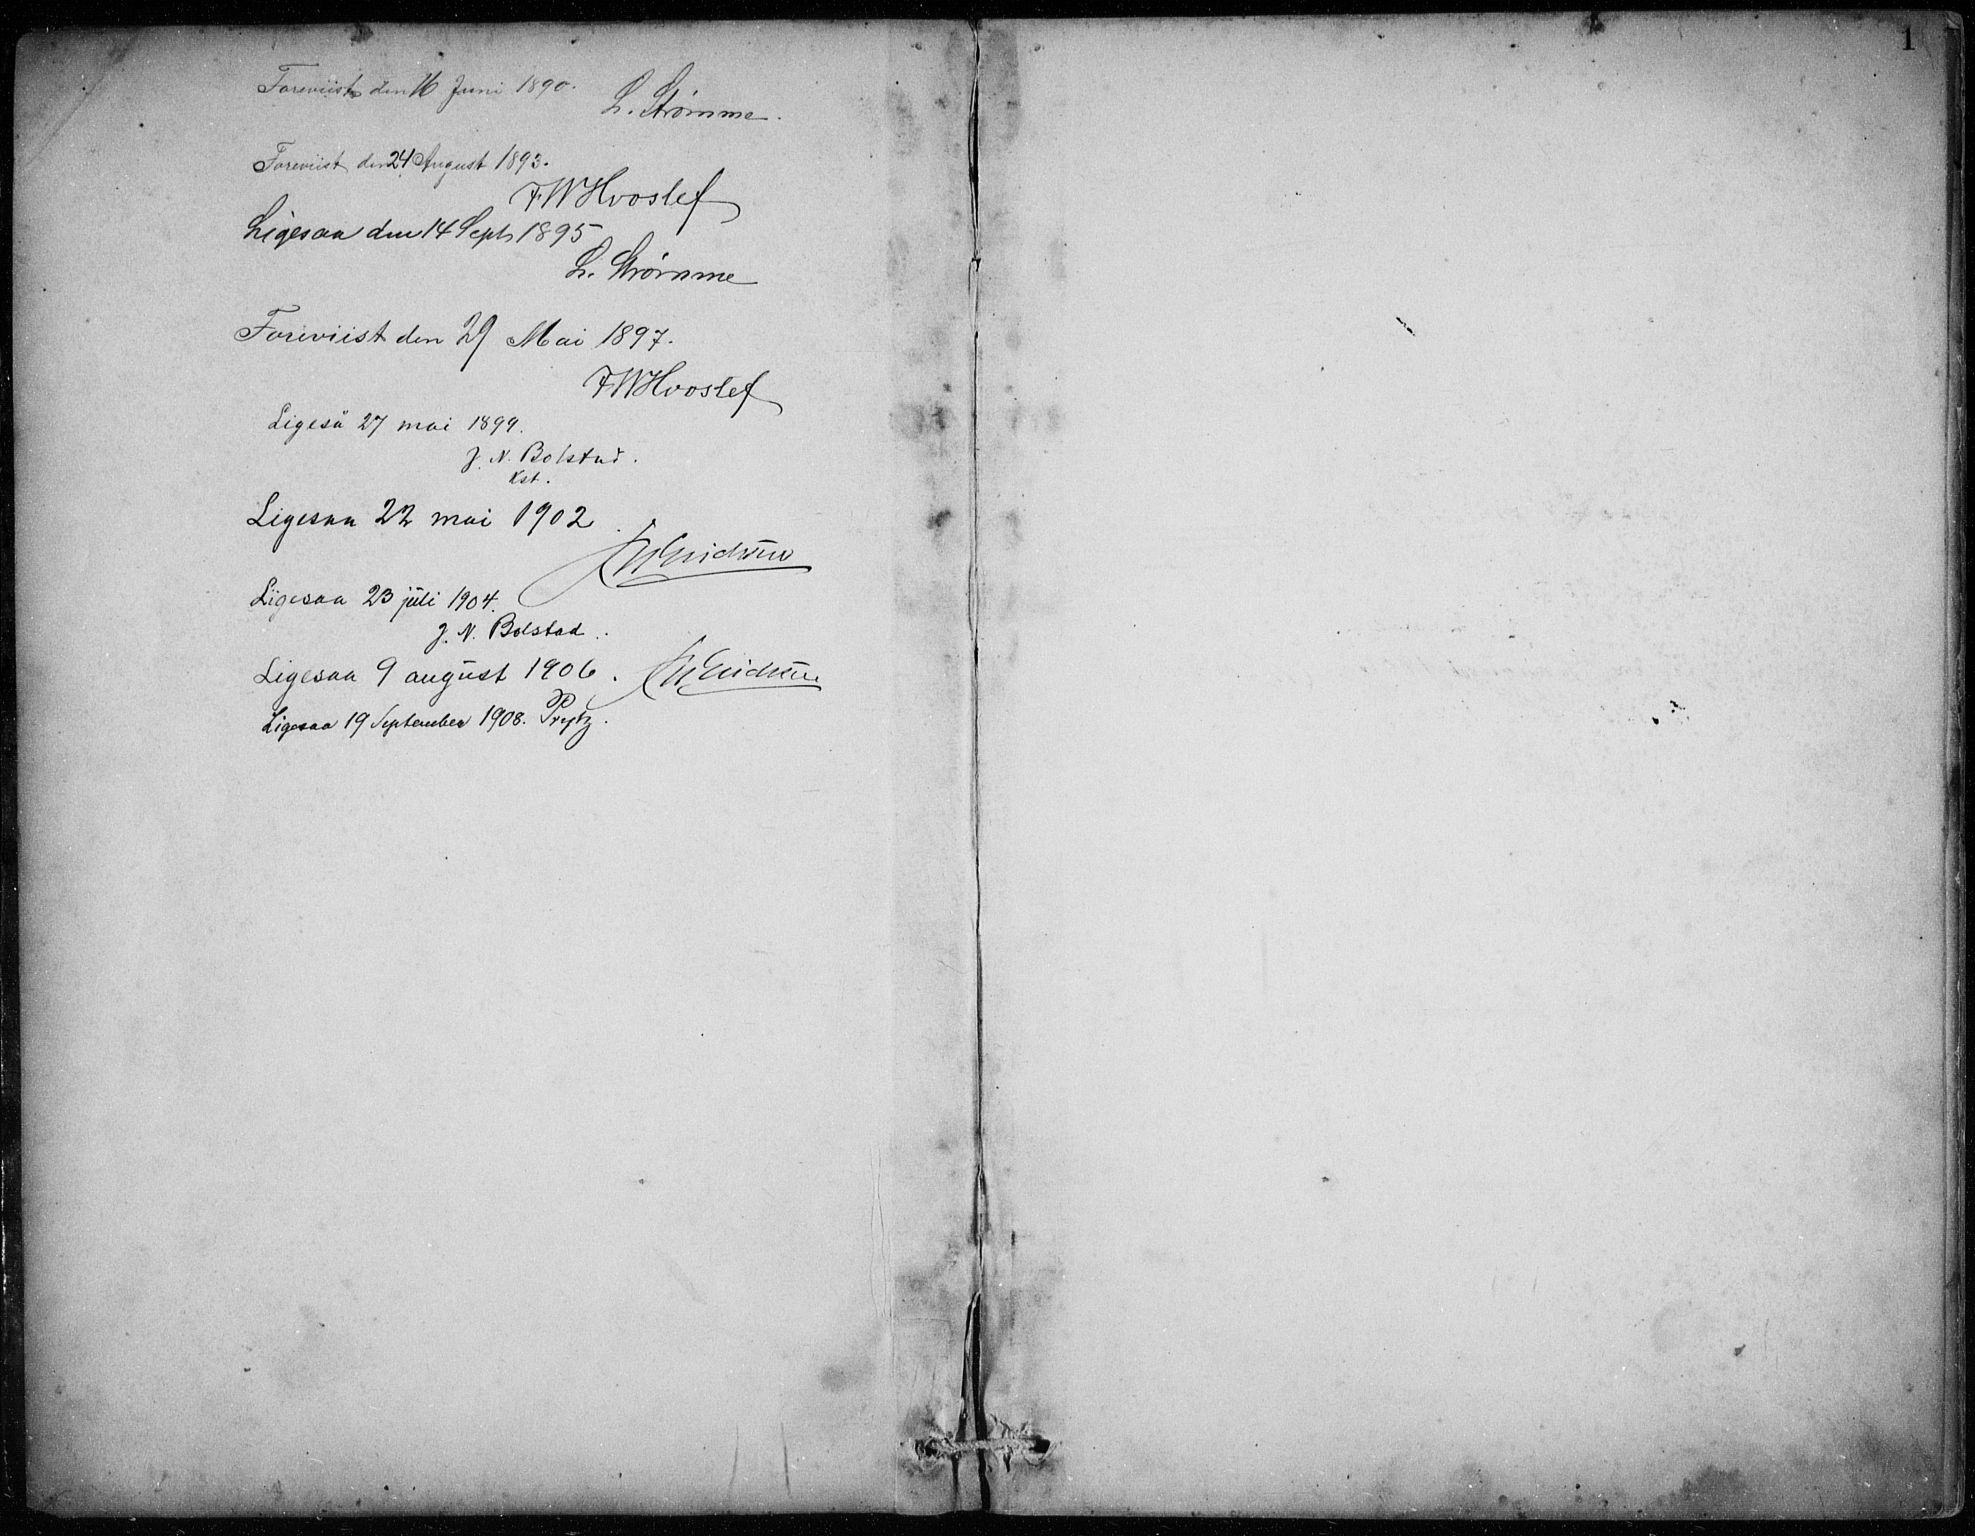 1
Foreviist den 16 Juni 1890.
L. Strømme.
Foreviist den 24 August 1893.
FWHvoslef
Ligesaa den 14 Sept 1895
L. Strømme
Foreviist den 29 Mai 1897.
FWHvoslef
Ligeså 27 mai 1899.
J. N. Bolstad.
Kst.
Ligesaa 22 mai 1902
Ligesaa 23 juli 1904.
J. N. Bolstad.
Ligesaa 9 august 1906.
Ligesaa 19 September 1908. Prytz.